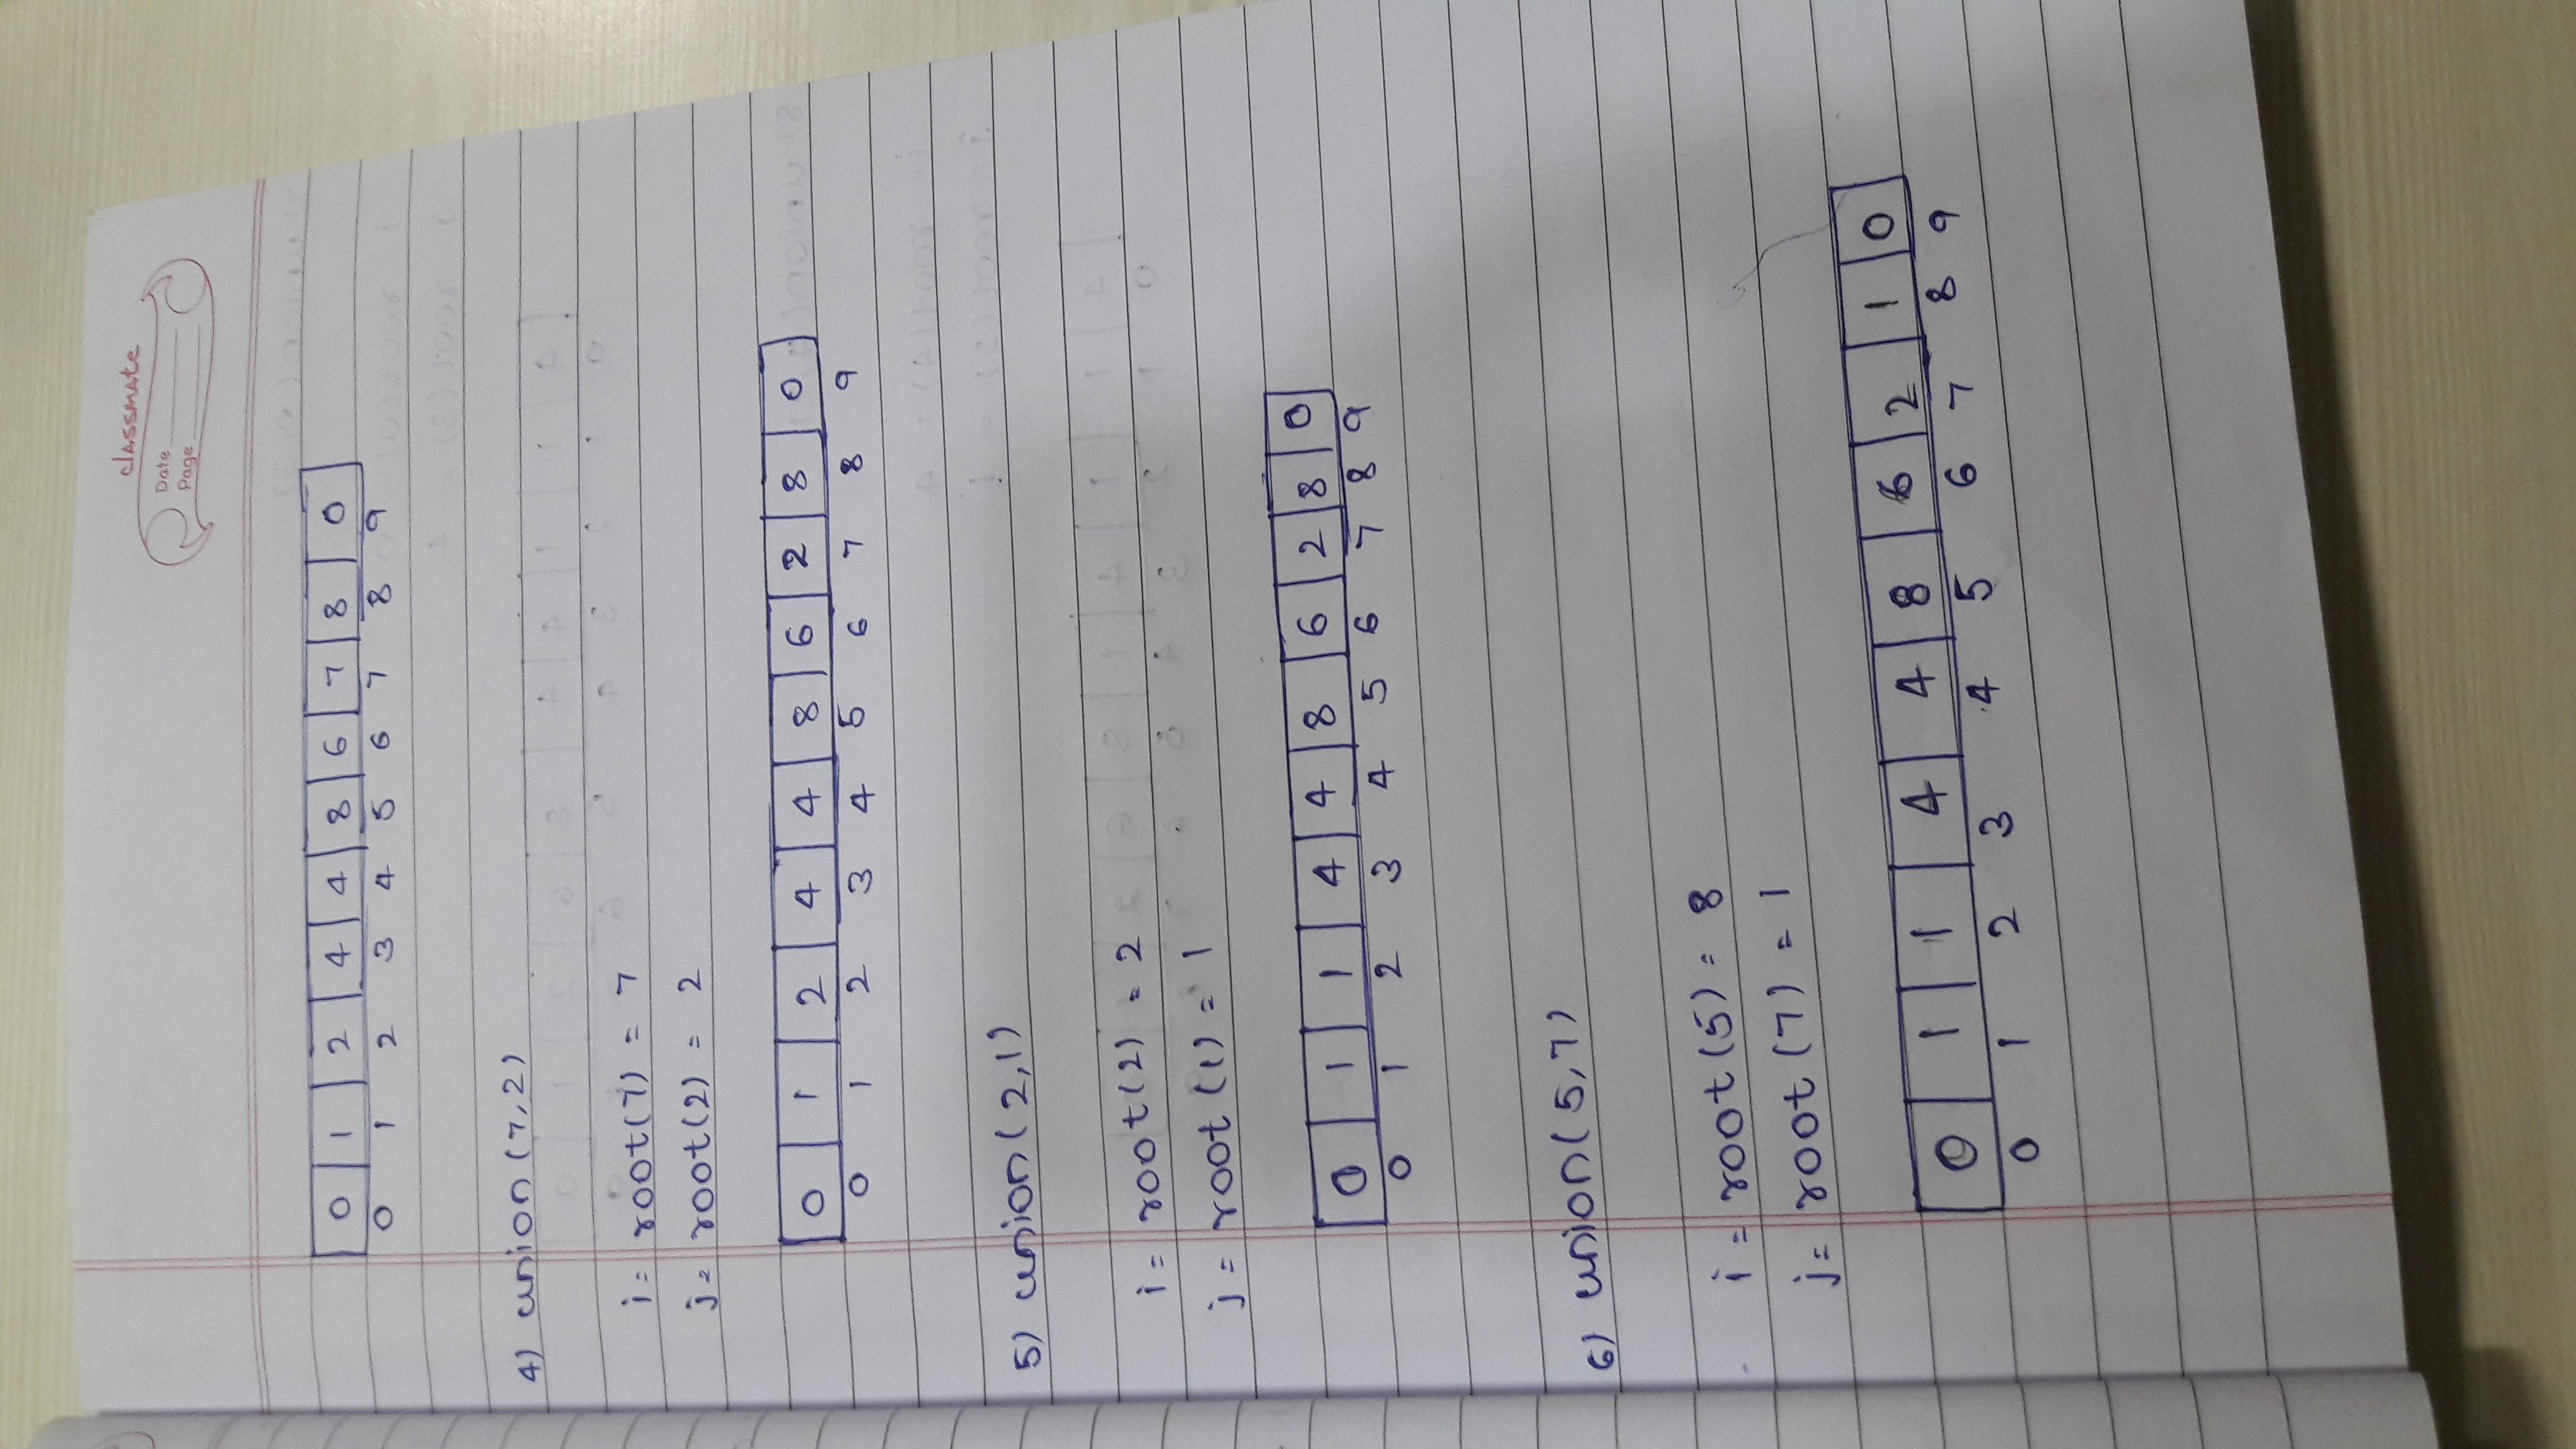 classmate
Date
Page
0 1 2 4 4 8 6 7 8 0
0 1 2 3 4 5 6 7 8 9
4) union(7,2)
i = root(7) = 7
j = root(2) = 2
0 1 2 4 4 8 6 2 8 0
0 1 2 3 4 5 6 7 8 9
5) union(2,1)
i = root(2) = 2
j = root(1) = 1
0 1 1 4 4 8 6 2 8 0
0 1 2 3 4 5 6 7 8 9
6) union(5,7)
i = root(5) = 8
j = root(7) = 1
0 1 1 4 4 8 6 2 1 0
0 1 2 3 4 5 6 7 8 9